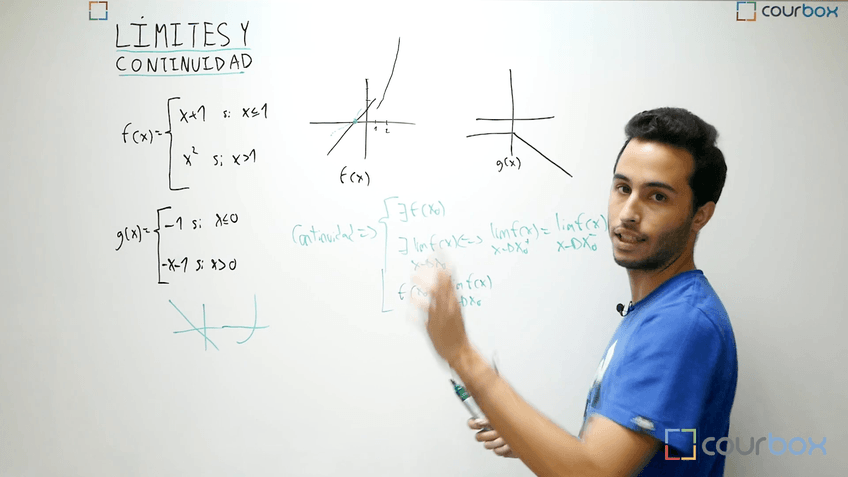 courbox
LÍMITES Y
CONTINUIDAD
f(x)= x+1 si x≤1
x² si x>1
g(x)= -1 si x≤0
-x-1 si x>0
1 2
f(x)
g(x)
Continuidad => ∃ f(x₀)
∃ lim f(x) <=> lim f(x) = lim f(x)
x->x₀⁺ x->x₀⁻
f(x f(x)
->x₀
courbox